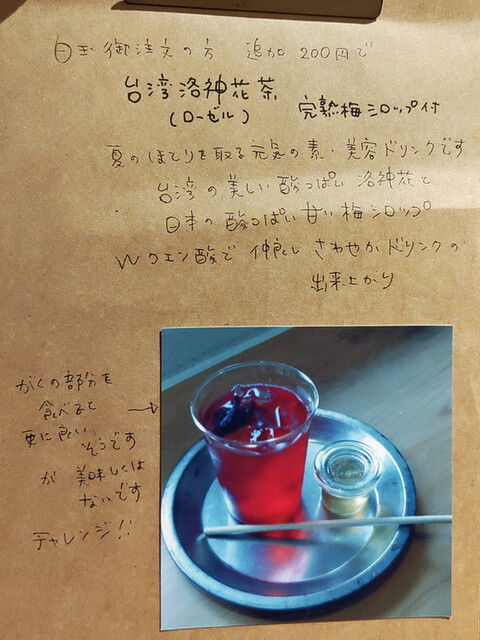 目玉御注文の方 追加200円で
台湾洛神花茶
(ローゼル)
完熟梅シロップ付
夏のほてりを取る元気の素・美容ドリンクです
台湾の美しい酸っぱい洛神花と
日本の酸っぱい甘い梅シロップ
Wクエン酸で仲良しさわやかドリンクの
出来上がり
がくの部分を
食べると
更に良い
そうです
が 美味しくは
ないです
チャレンジ!!